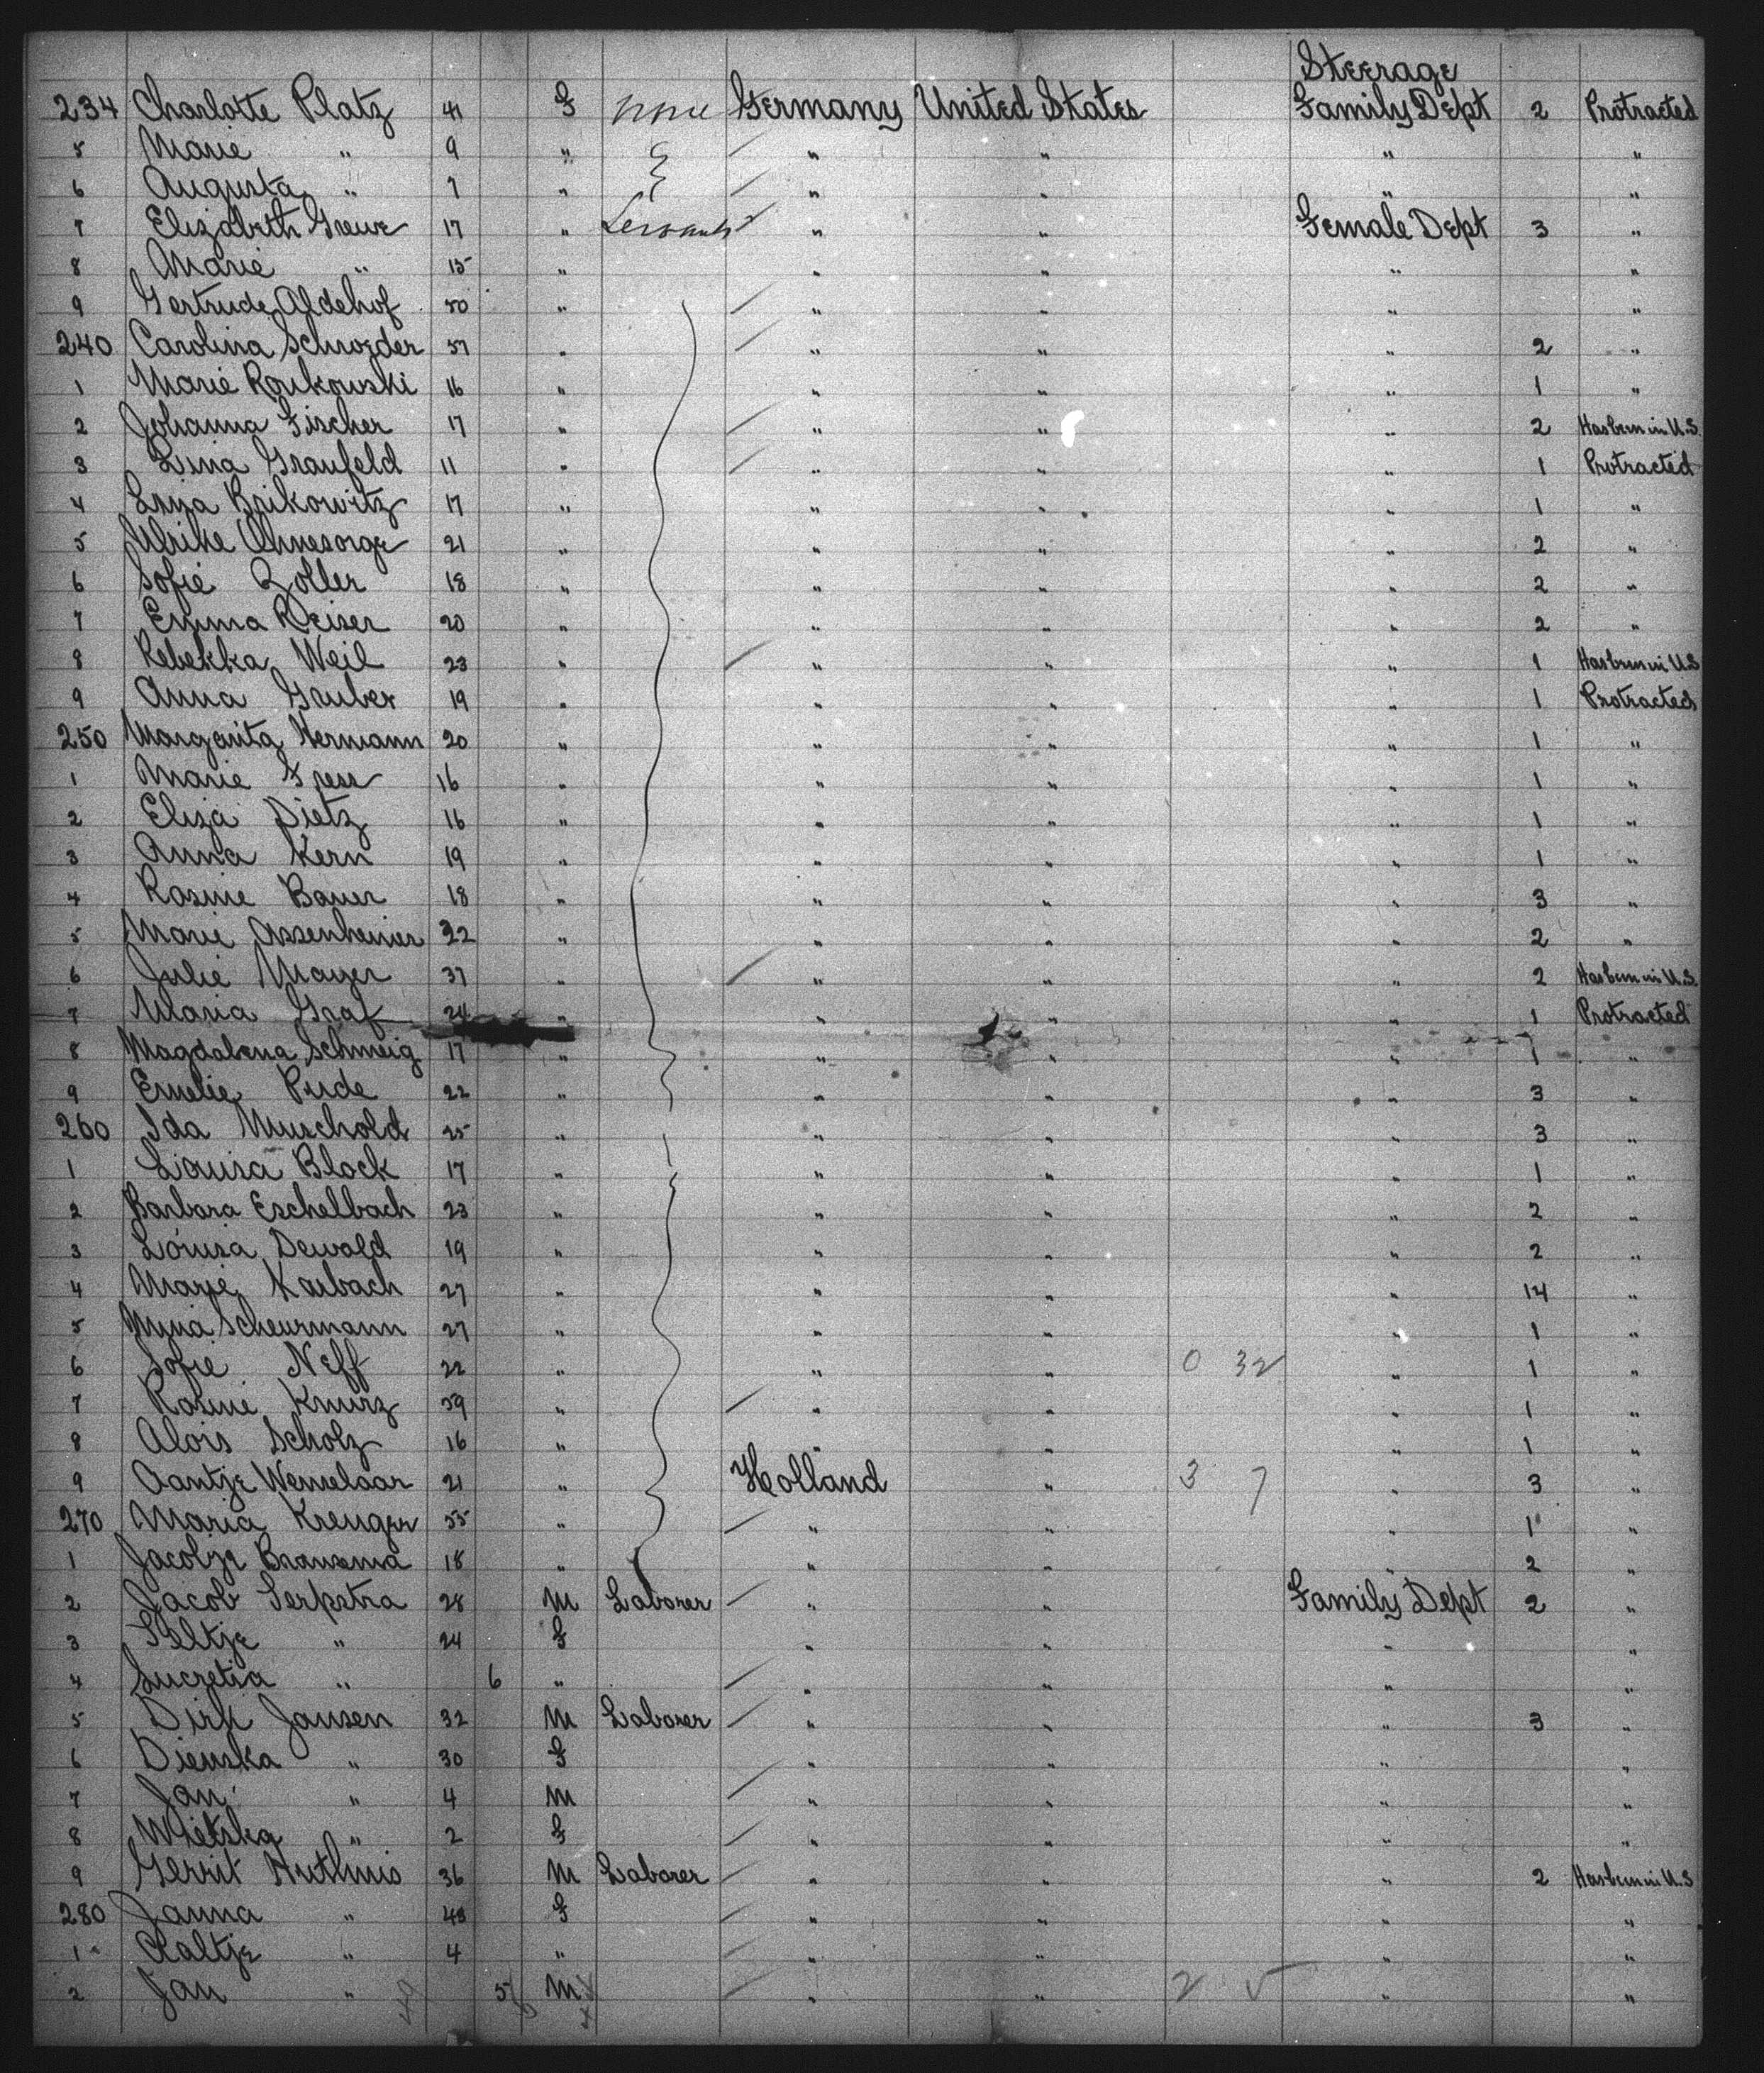 Steerage
234 Charlotte Platz 41 F none Germany United States Family Dept 2 Protracted
5 Marie " 9 " " " " "
6 Augusta " 7 " " " " "
7 Elizabeth Grewe 17 " Servants " " Female Dept 3 "
8 Marie " 15 " " " " "
9 Gertrude Aldehof 50 " " " " "
240 Carolina Schroeder 57 " " " " 2 "
1 Marie Ronkowski 16 " " " " 1 "
2 Johanna Fischer 17 " " " " 2 Has been in U.S.
3 Lina Graufeld 11 " " " " 1 Protracted
4 Lina Brikowitz 17 " " " " 1 "
5 Ulrike Ohnesorge 21 " " " " 2 "
6 Sofie Zoller 18 " " " " 2 "
7 Emma Reiser 20 " " " " 2 "
8 Rebekka Weil 23 " " " " 1 Has been in U.S
9 Anna Gruber 19 " " " " 1 Protracted
250 Margarita Hermann 20 " " " " 1 "
1 Marie Fress 16 " " " " 1 "
2 Eliza Dietz 16 " " " " 1 "
3 Anna Kern 19 " " " " 1 "
4 Rosine Bauer 18 " " " " 3 "
5 Marie Assenheimer 22 " " " " 2 "
6 Julie Mayer 37 " " " " 2 Has been in U.S.
7 Maria Graf 24 " " " " 1 Protracted
8 Magdalena Schmeig 17 " " " " 1 "
9 Emelie Pude 22 " " " " 3 "
260 Ida Muschold 25 " " " " 3 "
1 Louisa Block 17 " " " " 1 "
2 Barbara Eschelbach 23 " " " " 2 "
3 Louisa Dewald 19 " " " " 2 "
4 Marie Karbach 27 " " " " 14 "
5 Mina Scheurmann 27 " " " " 1 "
6 Sofie Neff 22 " " " 0 32 " 1 "
7 Rosine Knurz 59 " " " " 1 "
8 Alois Scholz 16 " " " " 1 "
9 Aantje Wemelaar 21 " Holland " 3 7 " 3 "
270 Maria Krenger 55 " " " " 1 "
1 Jacobje Bransema 18 " " " " 2 "
2 Jacob Terpstra 28 M Laborer " " Family Dept 2 "
3 Teltje " 24 F " " " "
4 Lucretia " 6 " " " " "
5 Dirk Jansen 32 M Laborer " " " 3 "
6 Dienska " 30 F " " " "
7 Jan " 4 M " " " "
8 Wietska " 2 F " " " "
9 Gerrit Huthuis 36 M Laborer " " " 2 Has been in U.S
280 Janna " 43 F " " " "
1 Aaltje " 4 " " " " "
2 Jan " 5 M " " 2 5 " "